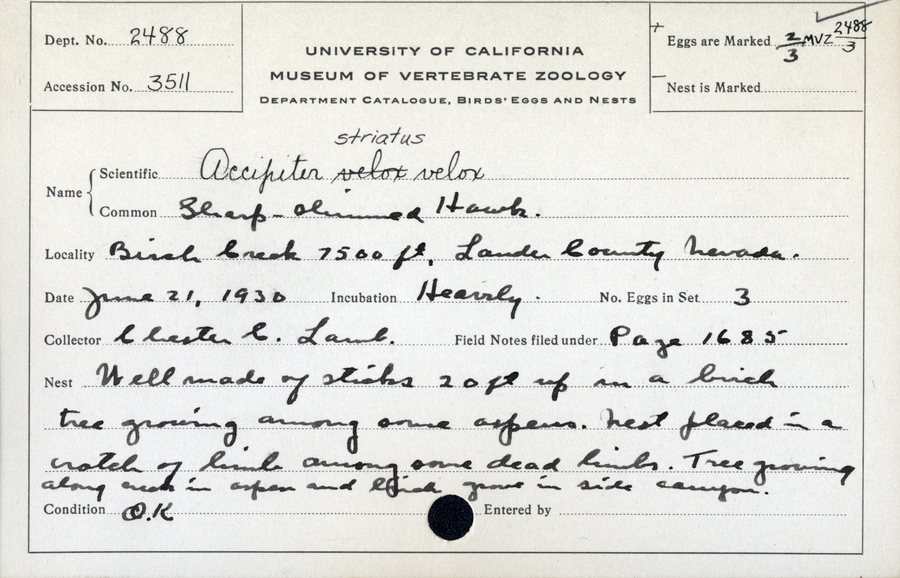 Dept. No. 2488
Accession No. 3511
UNIVERSITY OF CALIFORNIA
MUSEUM OF VERTEBRATE ZOOLOGY
DEPARTMENT CATALOGUE, BIRDS' EGGS AND NESTS
+ Eggs are Marked 2/3 MVZ 2488/3
— Nest is Marked
striatus
Name { Scientific Accipiter velox velox
Common Sharp-shinned Hawk.
Locality Birch Creek 7500 ft, Lander County Nevada.
Date June 21, 1930 Incubation Heavily. No. Eggs in Set 3
Collector Chester C. Lamb. Field Notes filed under Page 1685
Nest Well made of sticks 20 ft up in a birch
tree growing among some aspens. Nest placed in a
crotch of limb among some dead limbs. Tree growing
along creek in aspen and birch grove in side canyon.
Condition O.K Entered by